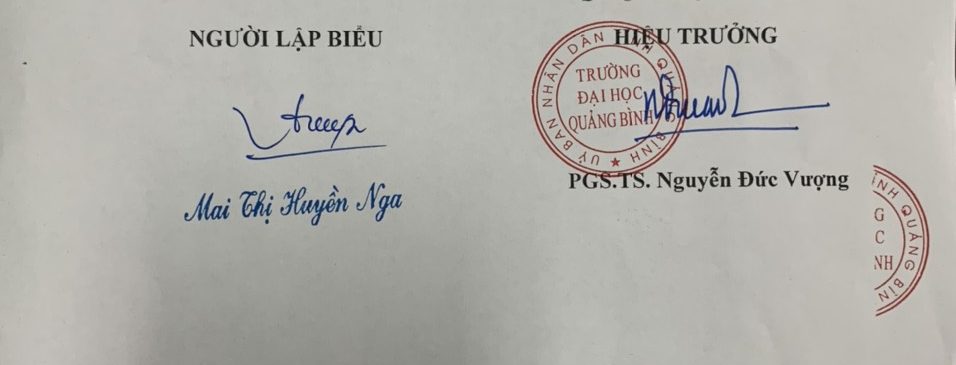 NGƯỜI LẬP BIỂU
HIỆU TRƯỞNG
ỦY BAN NHÂN DÂN TỈNH QUẢNG BÌNH
TRƯỜNG
ĐẠI HỌC
QUẢNG BÌNH
Mai Thị Huyền Nga
PGS.TS. Nguyễn Đức Vượng
NH QUẢNG BÌN
G
C
NH